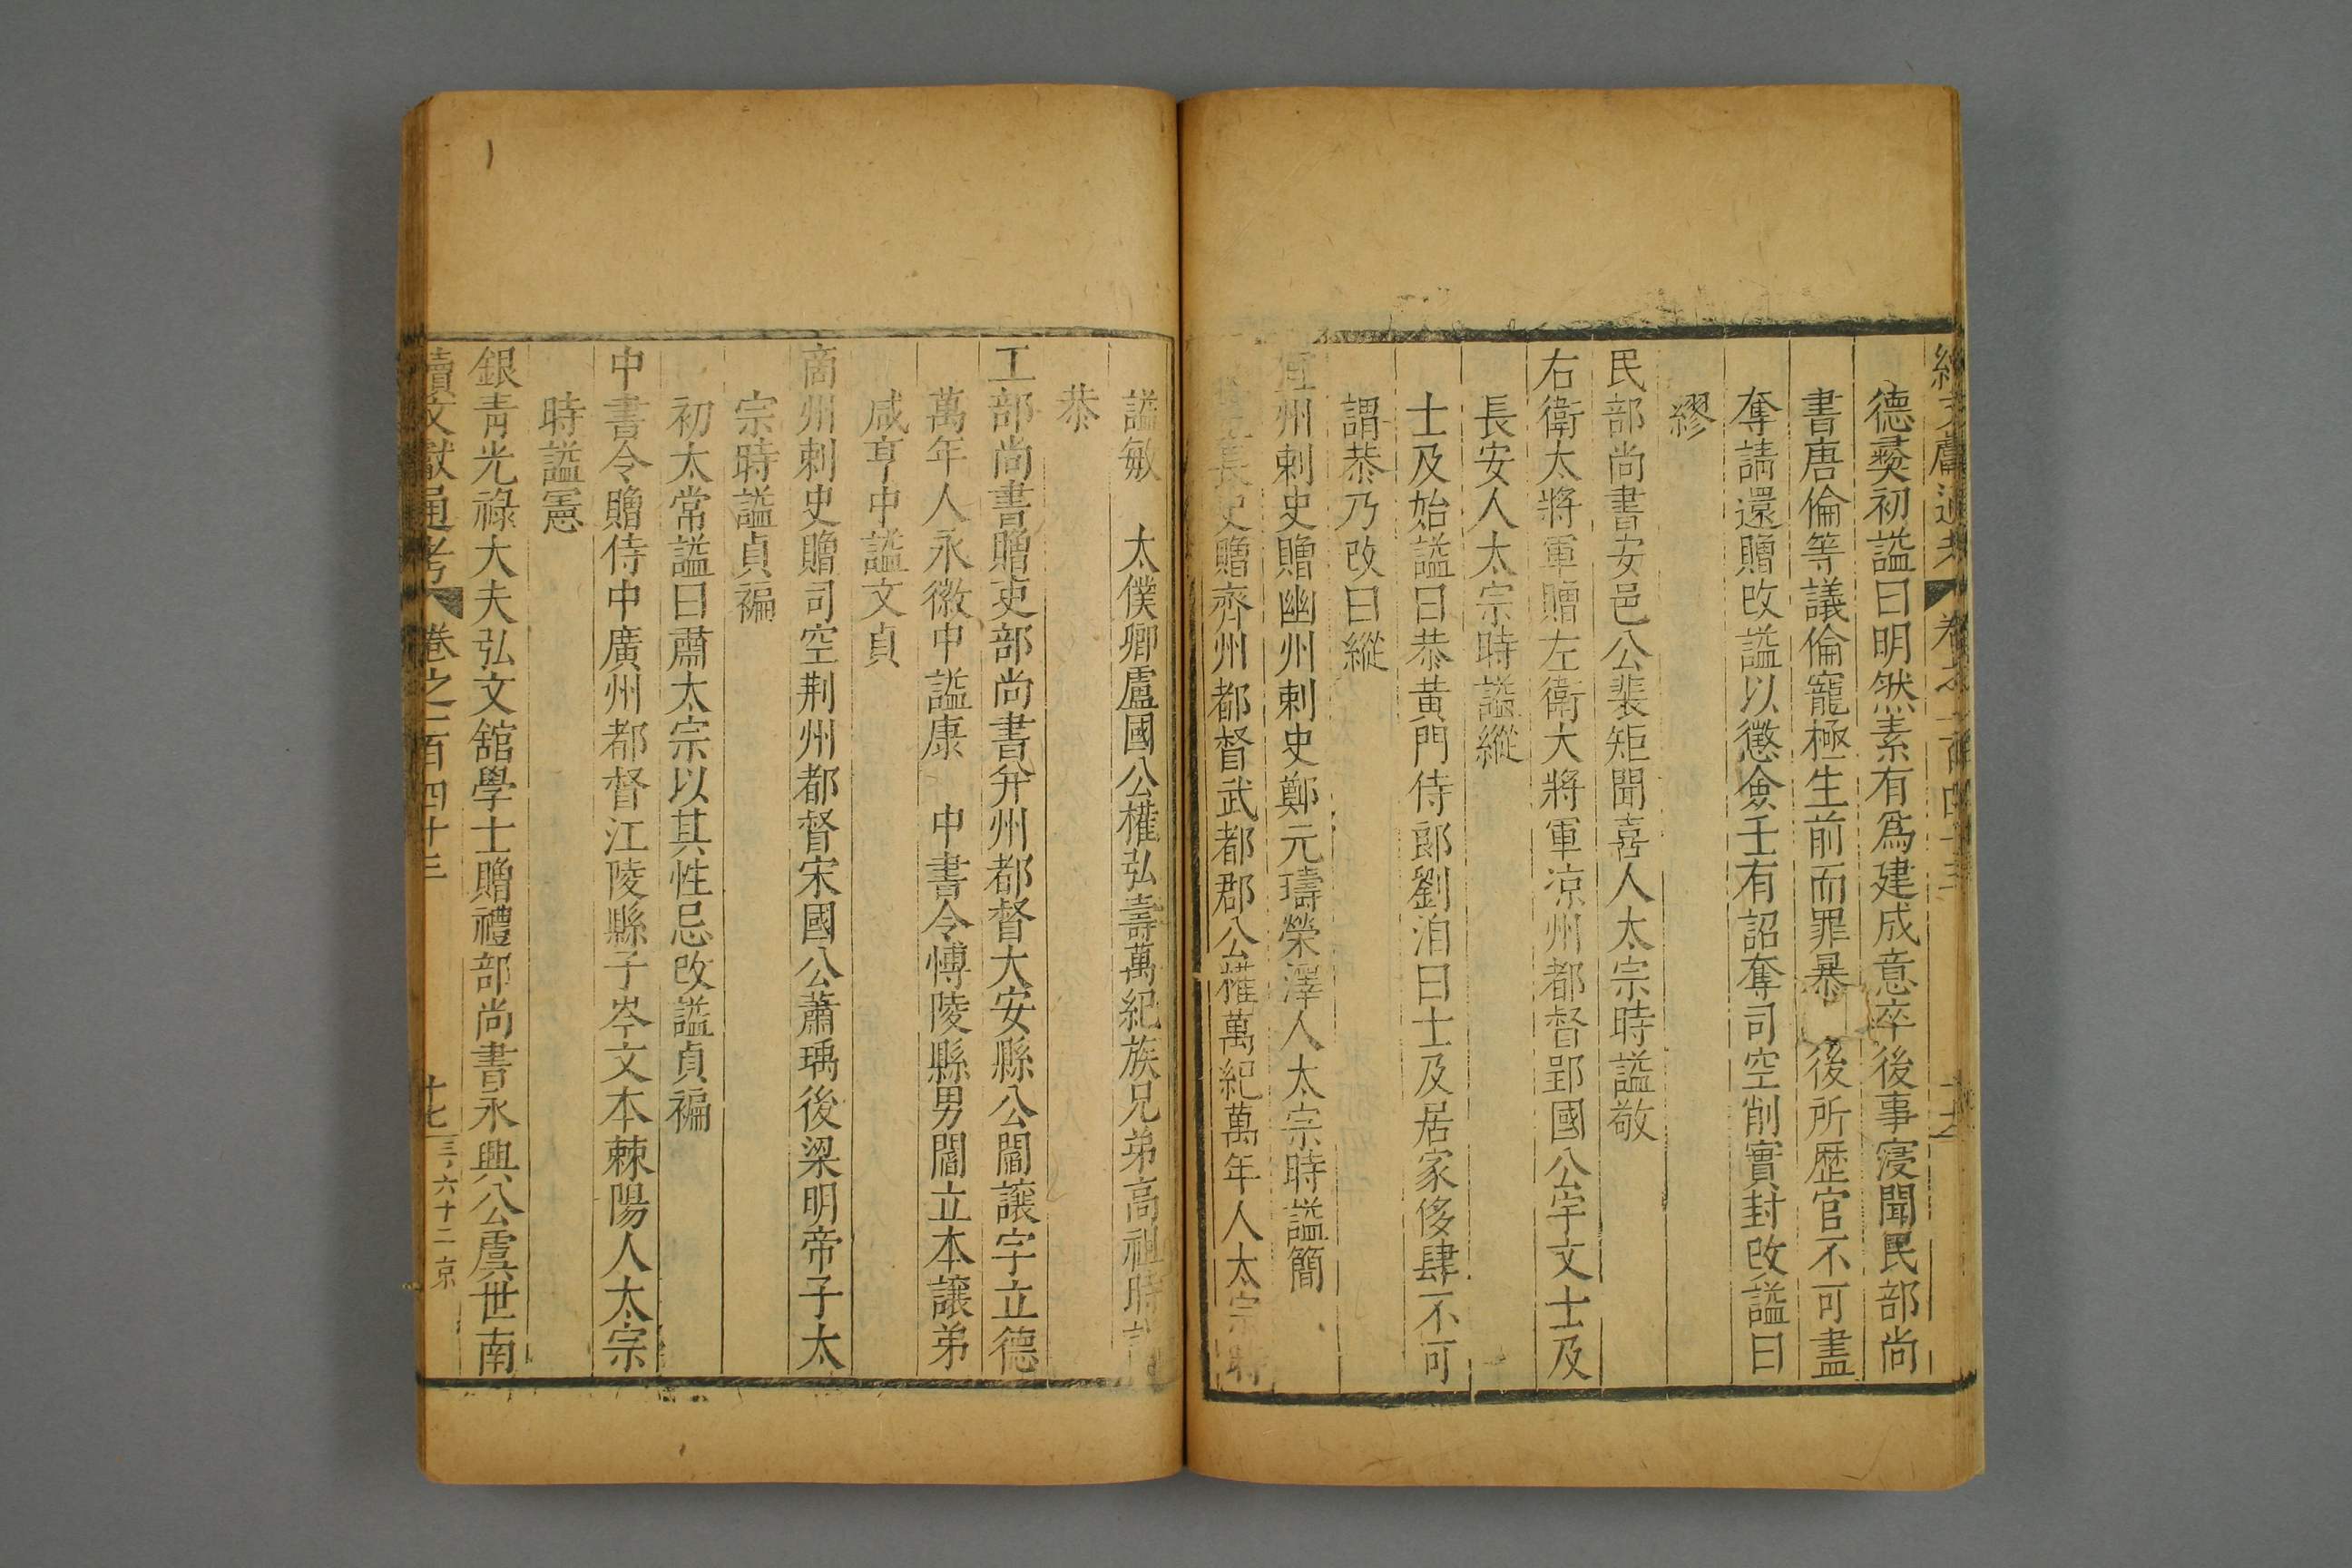 續文獻通考 卷之一百四十三
德彛初謚曰明然素有爲建成意卒後事寖聞民部尚
書唐倫等議倫寵極生前而罪暴 後所歴官不可盡
奪請還贈改謚以懲僉壬有詔奪司空削實封改謚曰
繆
民部尚書安邑公裴矩聞喜人太宗時謚敬
右衛大將軍贈左衛大將軍凉州都督郢國公宇文士及
長安人太宗時謚縱
士及始謚曰恭黃門侍郎劉洎曰士及居家侈肆不可
謂恭乃改曰縱
宜州刺史贈幽州刺史鄭元璹滎澤人太宗時謚簡
長史贈齊州都督武都郡公權萬紀萬年人太宗時
謚敏 太僕卿盧國公權弘壽萬紀族兄弟高祖時謚
恭
工部尚書贈吏部尚書并州都督大安縣公閻讓字立德
萬年人永徽中謚康 中書令愽陵縣男閻立本讓弟
咸亨中謚文貞
商州刺史贈司空荆州都督宋國公蕭瑀後梁明帝子太
宗時謚貞褊
初太常謚曰肅太宗以其性忌改謚貞褊
中書令贈侍中廣州都督江陵縣子岑文本棘陽人太宗
時謚憲
銀青光祿大夫弘文舘學士贈禮部尚書永興公虞世南
續文獻通考 卷之一百四十三 十七 三六十二 京